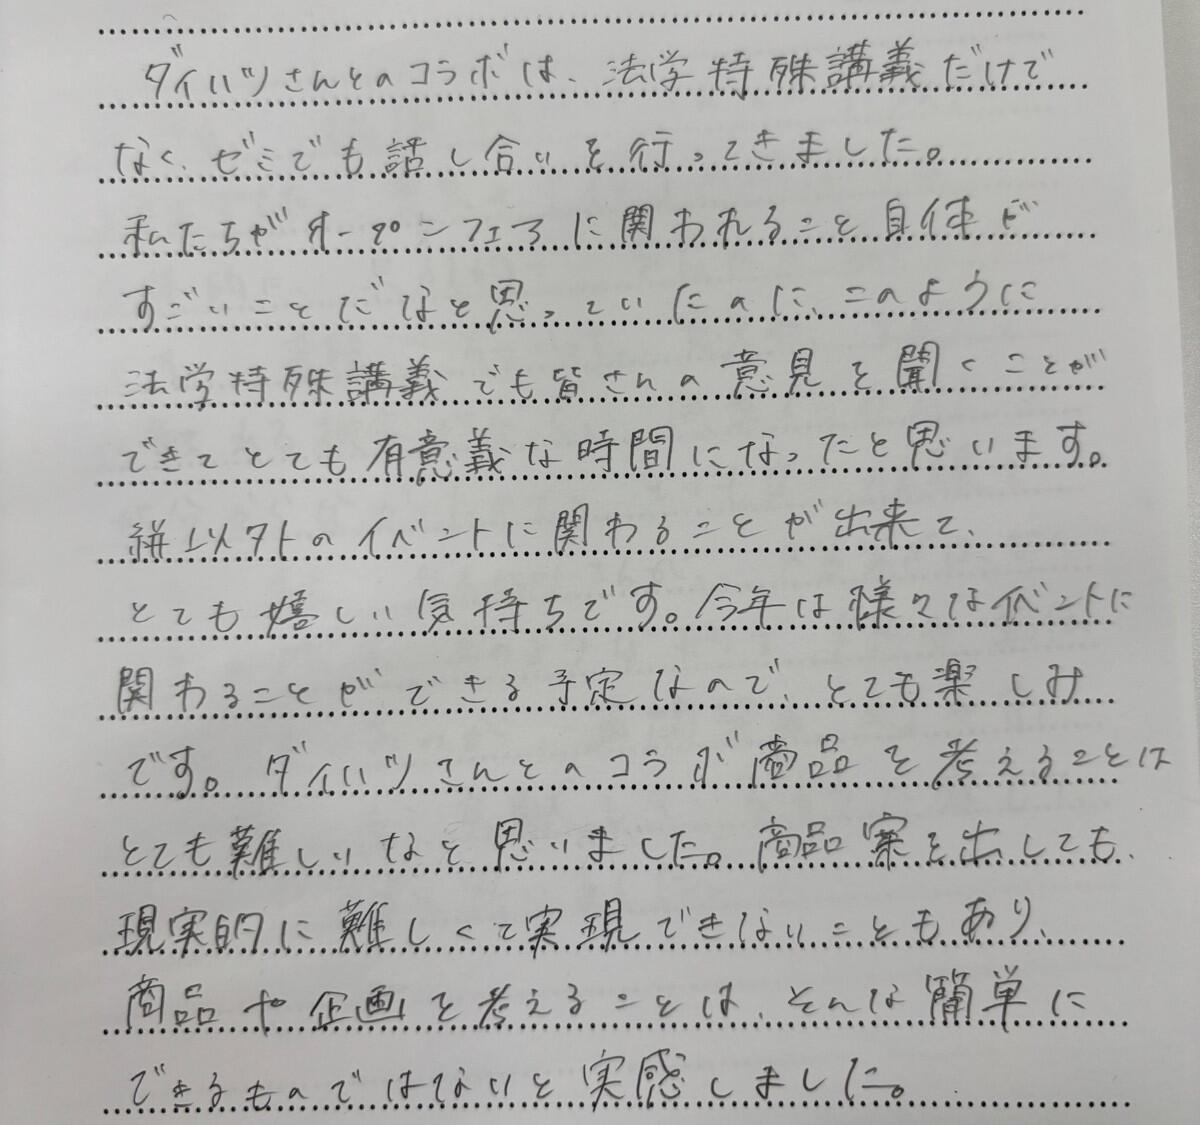 ダイハツさんとのコラボは、法学特殊講義だけで
なく、ゼミでも話し合いを行ってきました。
私たちがオープンフェアに関われること自体が
すごいことだなと思っていたのに、このように
法学特殊講義でも皆さんの意見を聞くことが
できてとても有意義な時間になったと思います。
絣以外のイベントに関わることが出来て、
とても嬉しい気持ちです。今年は様々なイベントに
関わることができる予定なので、とても楽しみ
です。ダイハツさんとのコラボ商品を考えることは
とても難しいなと思いました。商品案を出しても、
現実的に難しくて実現できないこともあり、
商品や企画を考えることは、そんな簡単に
できるものではないと実感しました。